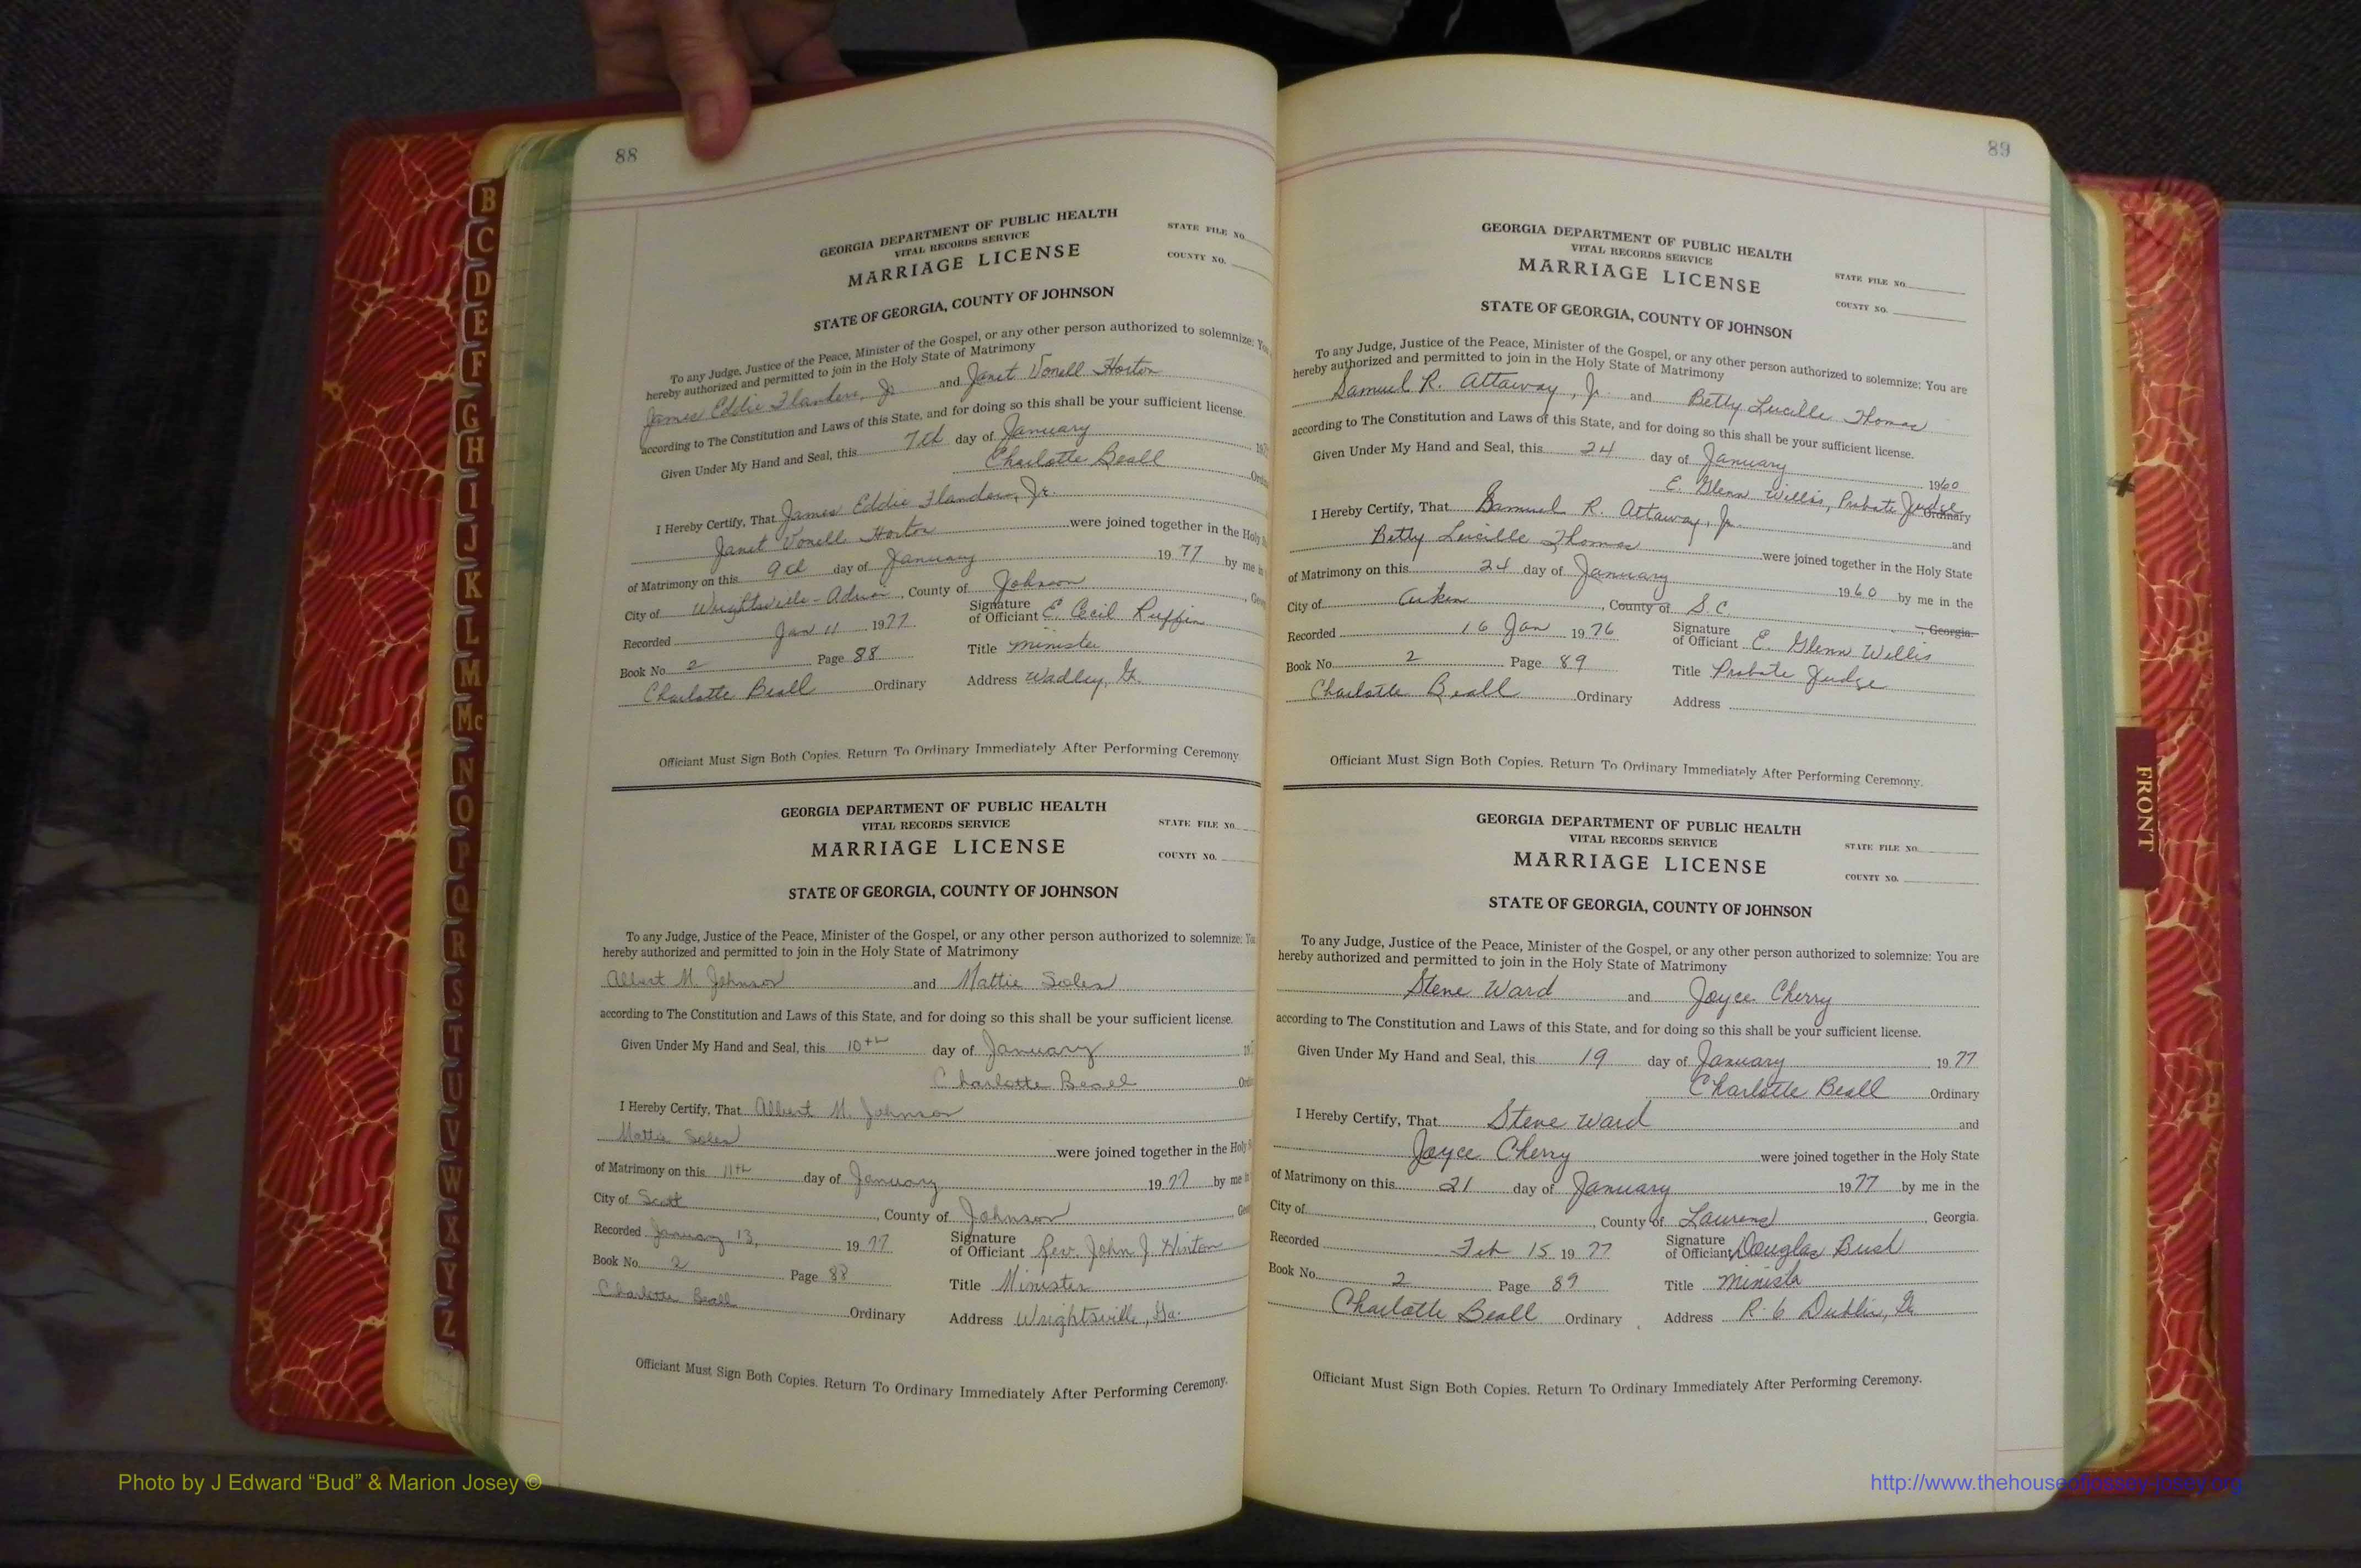 B
C
D
E
F
G
H
I
J
K
L
M
Mc
N
O
P
Q
R
S
T
U
V
W
X
Y
Z
88
GEORGIA DEPARTMENT OF PUBLIC HEALTH
VITAL RECORDS SERVICE
MARRIAGE LICENSE
STATE FILE NO.
COUNTY NO.
STATE OF GEORGIA, COUNTY OF JOHNSON
To any Judge, Justice of the Peace, Minister of the Gospel, or any other person authorized to solemnize: You
hereby authorized and permitted to join in the Holy State of Matrimony
James Eddie Flanders, Jr. and Janet Vonell Horton
according to The Constitution and Laws of this State, and for doing so this shall be your sufficient license.
Given Under My Hand and Seal, this 7th day of January
Charlotte Beall
I Hereby Certify, That James Eddie Flanders, Jr.
Janet Vonell Horton were joined together in the Holy
of Matrimony on this 9th day of January 1977 by me
City of Wrightsville-Adrian, County of Johnson
Recorded Jan 11 1977 Signature of Officiant E. Cecil Ruffin
Book No. 2 Page 88 Title Minister
Charlotte Beall Ordinary Address Wadley, Ga.
Officiant Must Sign Both Copies. Return To Ordinary Immediately After Performing Ceremony.
GEORGIA DEPARTMENT OF PUBLIC HEALTH
VITAL RECORDS SERVICE
MARRIAGE LICENSE
STATE FILE NO.
COUNTY NO.
STATE OF GEORGIA, COUNTY OF JOHNSON
To any Judge, Justice of the Peace, Minister of the Gospel, or any other person authorized to solemnize: You
hereby authorized and permitted to join in the Holy State of Matrimony
Albert M. Johnson and Mattie Soles
according to The Constitution and Laws of this State, and for doing so this shall be your sufficient license.
Given Under My Hand and Seal, this 10th day of January
Charlotte Beall
I Hereby Certify, That Albert M. Johnson
Mattie Soles were joined together in the Holy
of Matrimony on this 11th day of January 1977 by me
City of Scott, County of Johnson
Recorded January 13, 1977 Signature of Officiant Rev. John J. Hinton
Book No. 2 Page 88 Title Minister
Charlotte Beall Ordinary Address Wrightsville, Ga.
Officiant Must Sign Both Copies. Return To Ordinary Immediately After Performing Ceremony.
89
GEORGIA DEPARTMENT OF PUBLIC HEALTH
VITAL RECORDS SERVICE
MARRIAGE LICENSE
STATE FILE NO.
COUNTY NO.
STATE OF GEORGIA, COUNTY OF JOHNSON
To any Judge, Justice of the Peace, Minister of the Gospel, or any other person authorized to solemnize: You are
hereby authorized and permitted to join in the Holy State of Matrimony
Samuel R. Attaway, Jr. and Betty Lucille Thomas
according to The Constitution and Laws of this State, and for doing so this shall be your sufficient license.
Given Under My Hand and Seal, this 24 day of January 1960
E. Glenn Willis, Probate Judge Ordinary
I Hereby Certify, That Samuel R. Attaway, Jr. and
Betty Lucille Thomas were joined together in the Holy State
of Matrimony on this 24 day of January 1960 by me in the
City of Aiken, County of S.C., Georgia.
Recorded 16 Jan 1976 Signature of Officiant E. Glenn Willis
Book No. 2 Page 89 Title Probate Judge
Charlotte Beall Ordinary Address
Officiant Must Sign Both Copies. Return To Ordinary Immediately After Performing Ceremony.
GEORGIA DEPARTMENT OF PUBLIC HEALTH
VITAL RECORDS SERVICE
MARRIAGE LICENSE
STATE FILE NO.
COUNTY NO.
STATE OF GEORGIA, COUNTY OF JOHNSON
To any Judge, Justice of the Peace, Minister of the Gospel, or any other person authorized to solemnize: You are
hereby authorized and permitted to join in the Holy State of Matrimony
Steve Ward and Joyce Cherry
according to The Constitution and Laws of this State, and for doing so this shall be your sufficient license.
Given Under My Hand and Seal, this 19 day of January 1977
Charlotte Beall Ordinary
I Hereby Certify, That Steve Ward and
Joyce Cherry were joined together in the Holy State
of Matrimony on this 21 day of January 1977 by me in the
City of , County of Laurens, Georgia.
Recorded Feb 15 1977 Signature of Officiant Douglas
Book No. 2 Page 89 Title Minister
Charlotte Beall Ordinary Address R. 6 Dublin, Ga
Officiant Must Sign Both Copies. Return To Ordinary Immediately After Performing Ceremony.
FRONT
Photo by J Edward “Bud” & Marion Josey ©
http://www.thehouseofjossey-josey.org